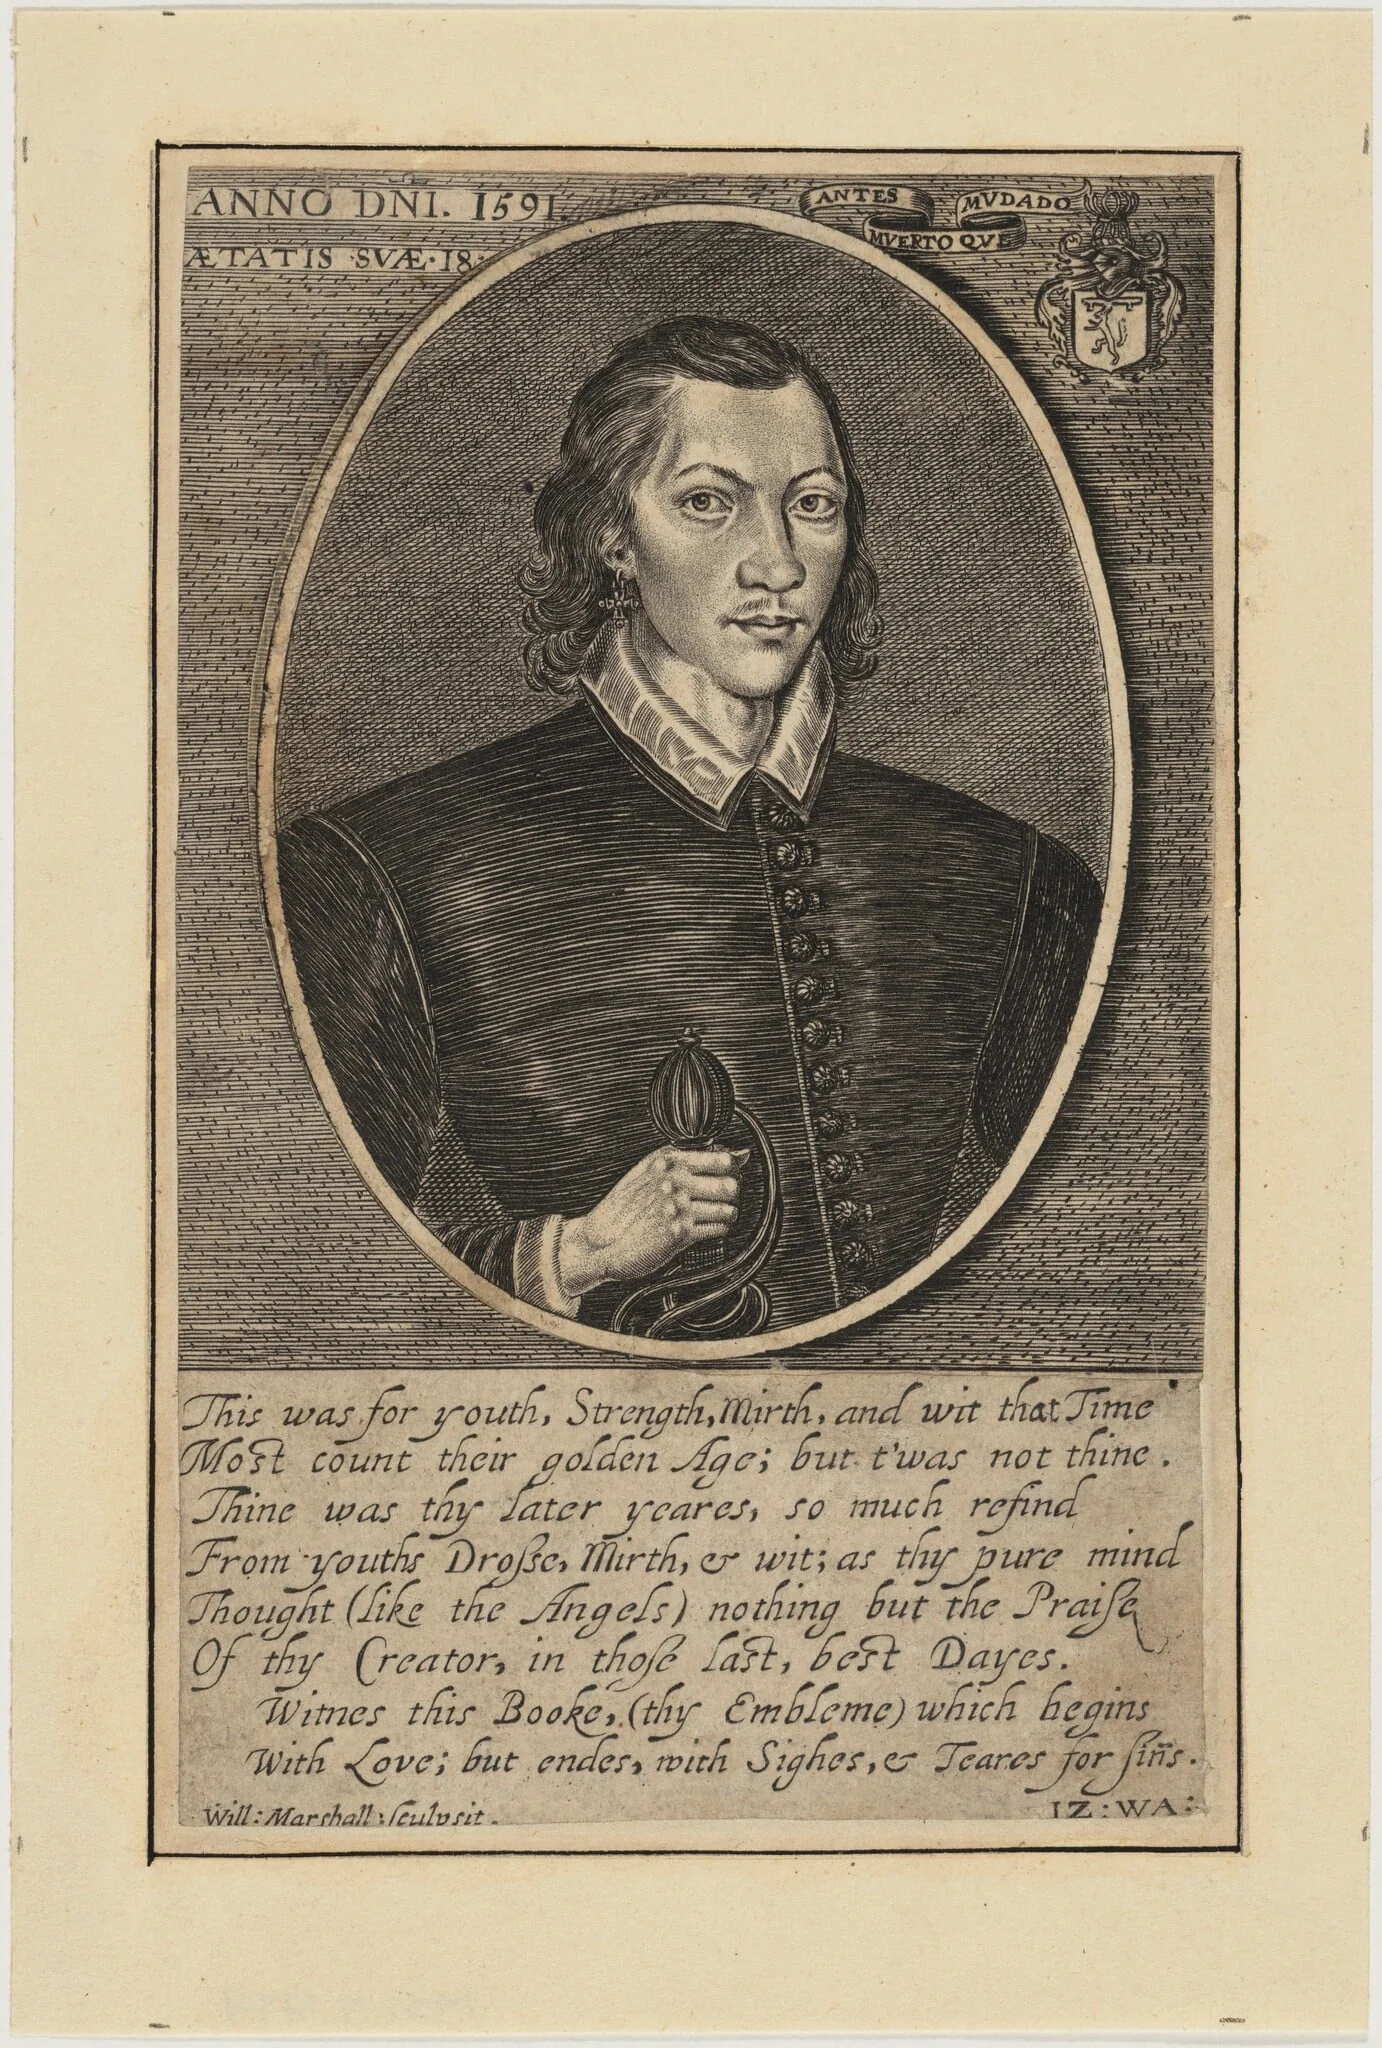 ANNO DNI. 1591.
ÆTATIS SVÆ. 18.
ANTES
MVERTO QVE
MVDADO
This was for youth, Strength, Mirth, and wit that Time
Most count their golden Age; but t'was not thine.
Thine was thy later yeares, so much refind
From youths Droſse, Mirth, & wit; as thy pure mind
Thought (like the Angels) nothing but the Praiſe
Of thy Creator, in thoſe last, best Dayes.
Witnes this Booke, (thy Embleme) which begins
With Love; but endes, with Sighes, & Teares for ſiñs.
Will: Marshall: ſculpsit.
IZ: WA: